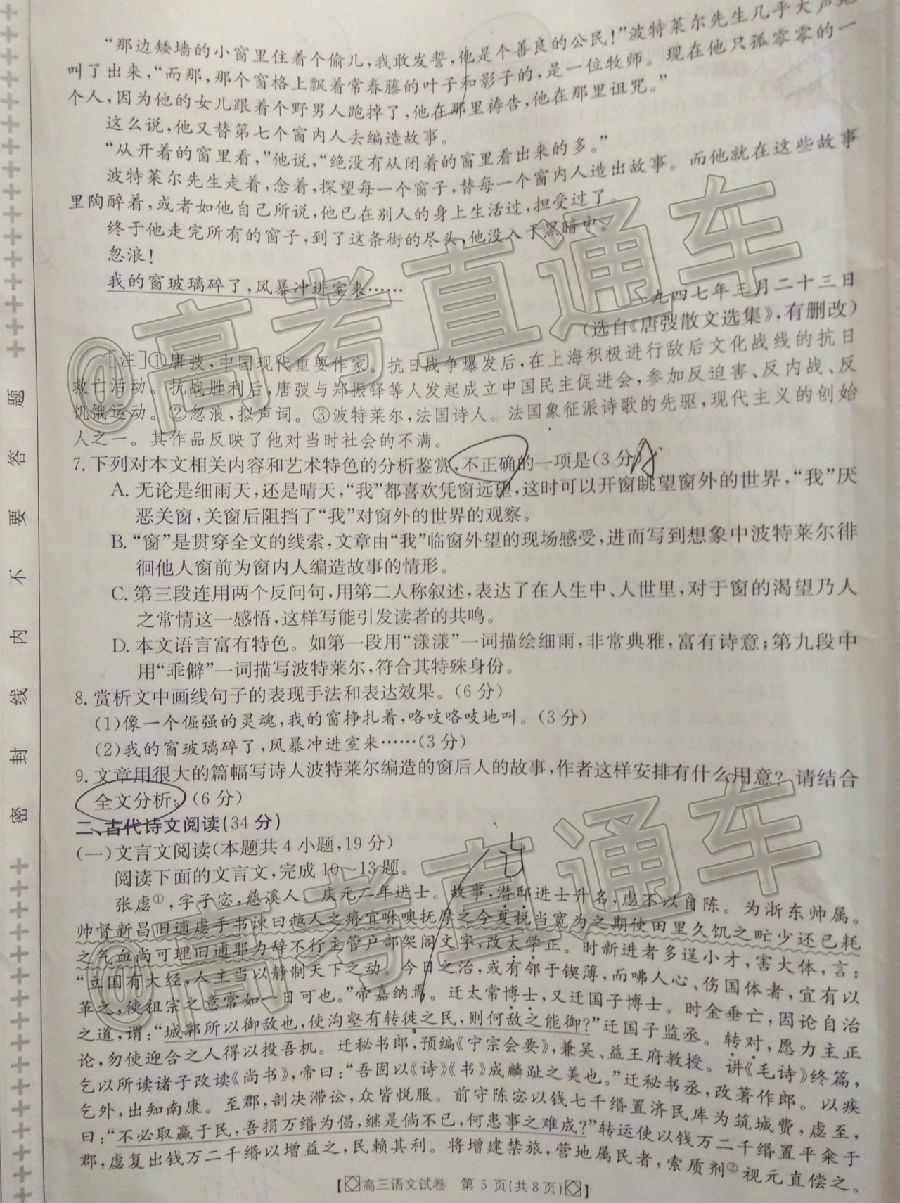 “那边矮墙的小窗里住着个偷儿，我敢发誓，他是个善良的公民！”波特莱尔先生几乎大声地
叫了出来，“而那，那个窗格上飘着常春藤的叶子和影子的，是一位牧师。现在他只孤零零的一
个人，因为他的女儿跟着个野男人跑掉了，他在那里祷告，他在那里诅咒。”
这么说，他又替第七个窗内人去编造故事。
“从开着的窗里看，”他说，“绝没有从闭着的窗里看出来的多。”
波特莱尔先生走着，念着，探望每一个窗子，替每一个窗内人造出故事。而他就在这些故事
里陶醉着，或者如他自己所说，他已在别人的身上生活过，担受过了。
终于他走完所有的窗子，到了这条街的尽头，他没入于黑暗中。
忽浪！
我的窗玻璃碎了，风暴冲进室来……
一九四七年三月二十三日
（选自《唐弢散文选集》，有删改）
[注]①唐弢，中国现代重要作家。抗日战争爆发后，在上海积极进行敌后文化战线的抗日
救亡活动。抗战胜利后，唐弢与郑振铎等人发起成立中国民主促进会，参加反迫害、反内战、反
饥饿运动。②忽浪，拟声词。③波特莱尔，法国诗人。法国象征派诗歌的先驱，现代主义的创始
人之一。其作品反映了他对当时社会的不满。
7.下列对本文相关内容和艺术特色的分析鉴赏，不正确的一项是(3分)
A.无论是细雨天，还是晴天，“我”都喜欢凭窗远望，这时可以开窗眺望窗外的世界，“我”厌
恶关窗，关窗后阻挡了“我”对窗外的世界的观察。
B.“窗”是贯穿全文的线索，文章由“我”临窗外望的现场感受，进而写到想象中波特莱尔徘
徊他人窗前为窗内人编造故事的情形。
C.第三段连用两个反问句，用第二人称叙述，表达了在人生中、人世里，对于窗的渴望乃人
之常情这一感悟，这样写能引发读者的共鸣。
D.本文语言富有特色。如第一段用“漾漾”一词描绘细雨，非常典雅，富有诗意；第九段中
用“乖僻”一词描写波特莱尔，符合其特殊身份。
8.赏析文中画线句子的表现手法和表达效果。(6分)
(1)像一个倔强的灵魂，我的窗挣扎着，咯吱咯吱地叫。(3分)
(2)我的窗玻璃碎了，风暴冲进室来……(3分)
9.文章用很大的篇幅写诗人波特莱尔编造的窗后人的故事，作者这样安排有什么用意？请结合
全文分析。(6分)
二、古代诗文阅读(34分)
(一)文言文阅读(本题共4小题，19分)
阅读下面的文言文，完成10～13题。
张虙①，字子宓，慈溪人。庆元二年进士。故事，潜邸进士升名，虙不以自陈。为浙东帅属。
帅督新昌旧逋虙手书谏曰越人之瘠宜咻噢抚摩之今夏税当宽为之期使田里久饥之甿少还已耗
之气血尚可理旧逋耶为辞不行主管户部架阁文字，改太学正。时新进者多逞小才，害大体，言：
“立国有大经，人主当以静制天下之动。今日之治，或有邻于锲薄，而咈人心、伤国体者，宜有以
革之，使祖宗之意常如一日可也。”帝嘉纳焉。迁太常博士，又迁国子博士。时金垂亡，因论自治
之道，谓：“城郭所以御敌也，使沟壑有转徙之民，则何敌之能御？”迁国子监丞。转对，愿力主正
论，勿使迎合之人得以投吾机。迁秘书郎，预编《宁宗会要》，兼吴、益王府教授。讲《毛诗》终篇，
乞以所读诸子改读《尚书》，帝曰：“吾固以《诗》《书》成麟趾之美也。”迁秘书丞，改著作郎。以疾
乞外，出知南康。至郡，剖决滞讼，众皆悦服。前守陈宓以钱七千缗置济民库为筑城费，虙至，
曰：“不必取赢于民，吾捐万缗为倡，继是倘不已，何患事之难成？”转运使以钱万二千缗置平籴于
郡，虙复出钱万二千缗以增益之，民赖其利。将增建禁旅，营地属民者，索质剂②视元直偿之。
【高三语文试卷　第 5 页(共 8 页)】
密封线内不要答题
@高考直通车
@高考直通车